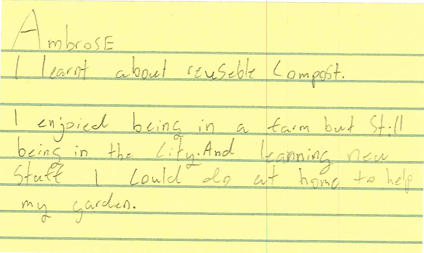 Ambrose
I learnt about reuseble Compost.
I enjoied being in a farm but Still
being in the City. And learning new
Stuff I Could do at home to help
my garden.